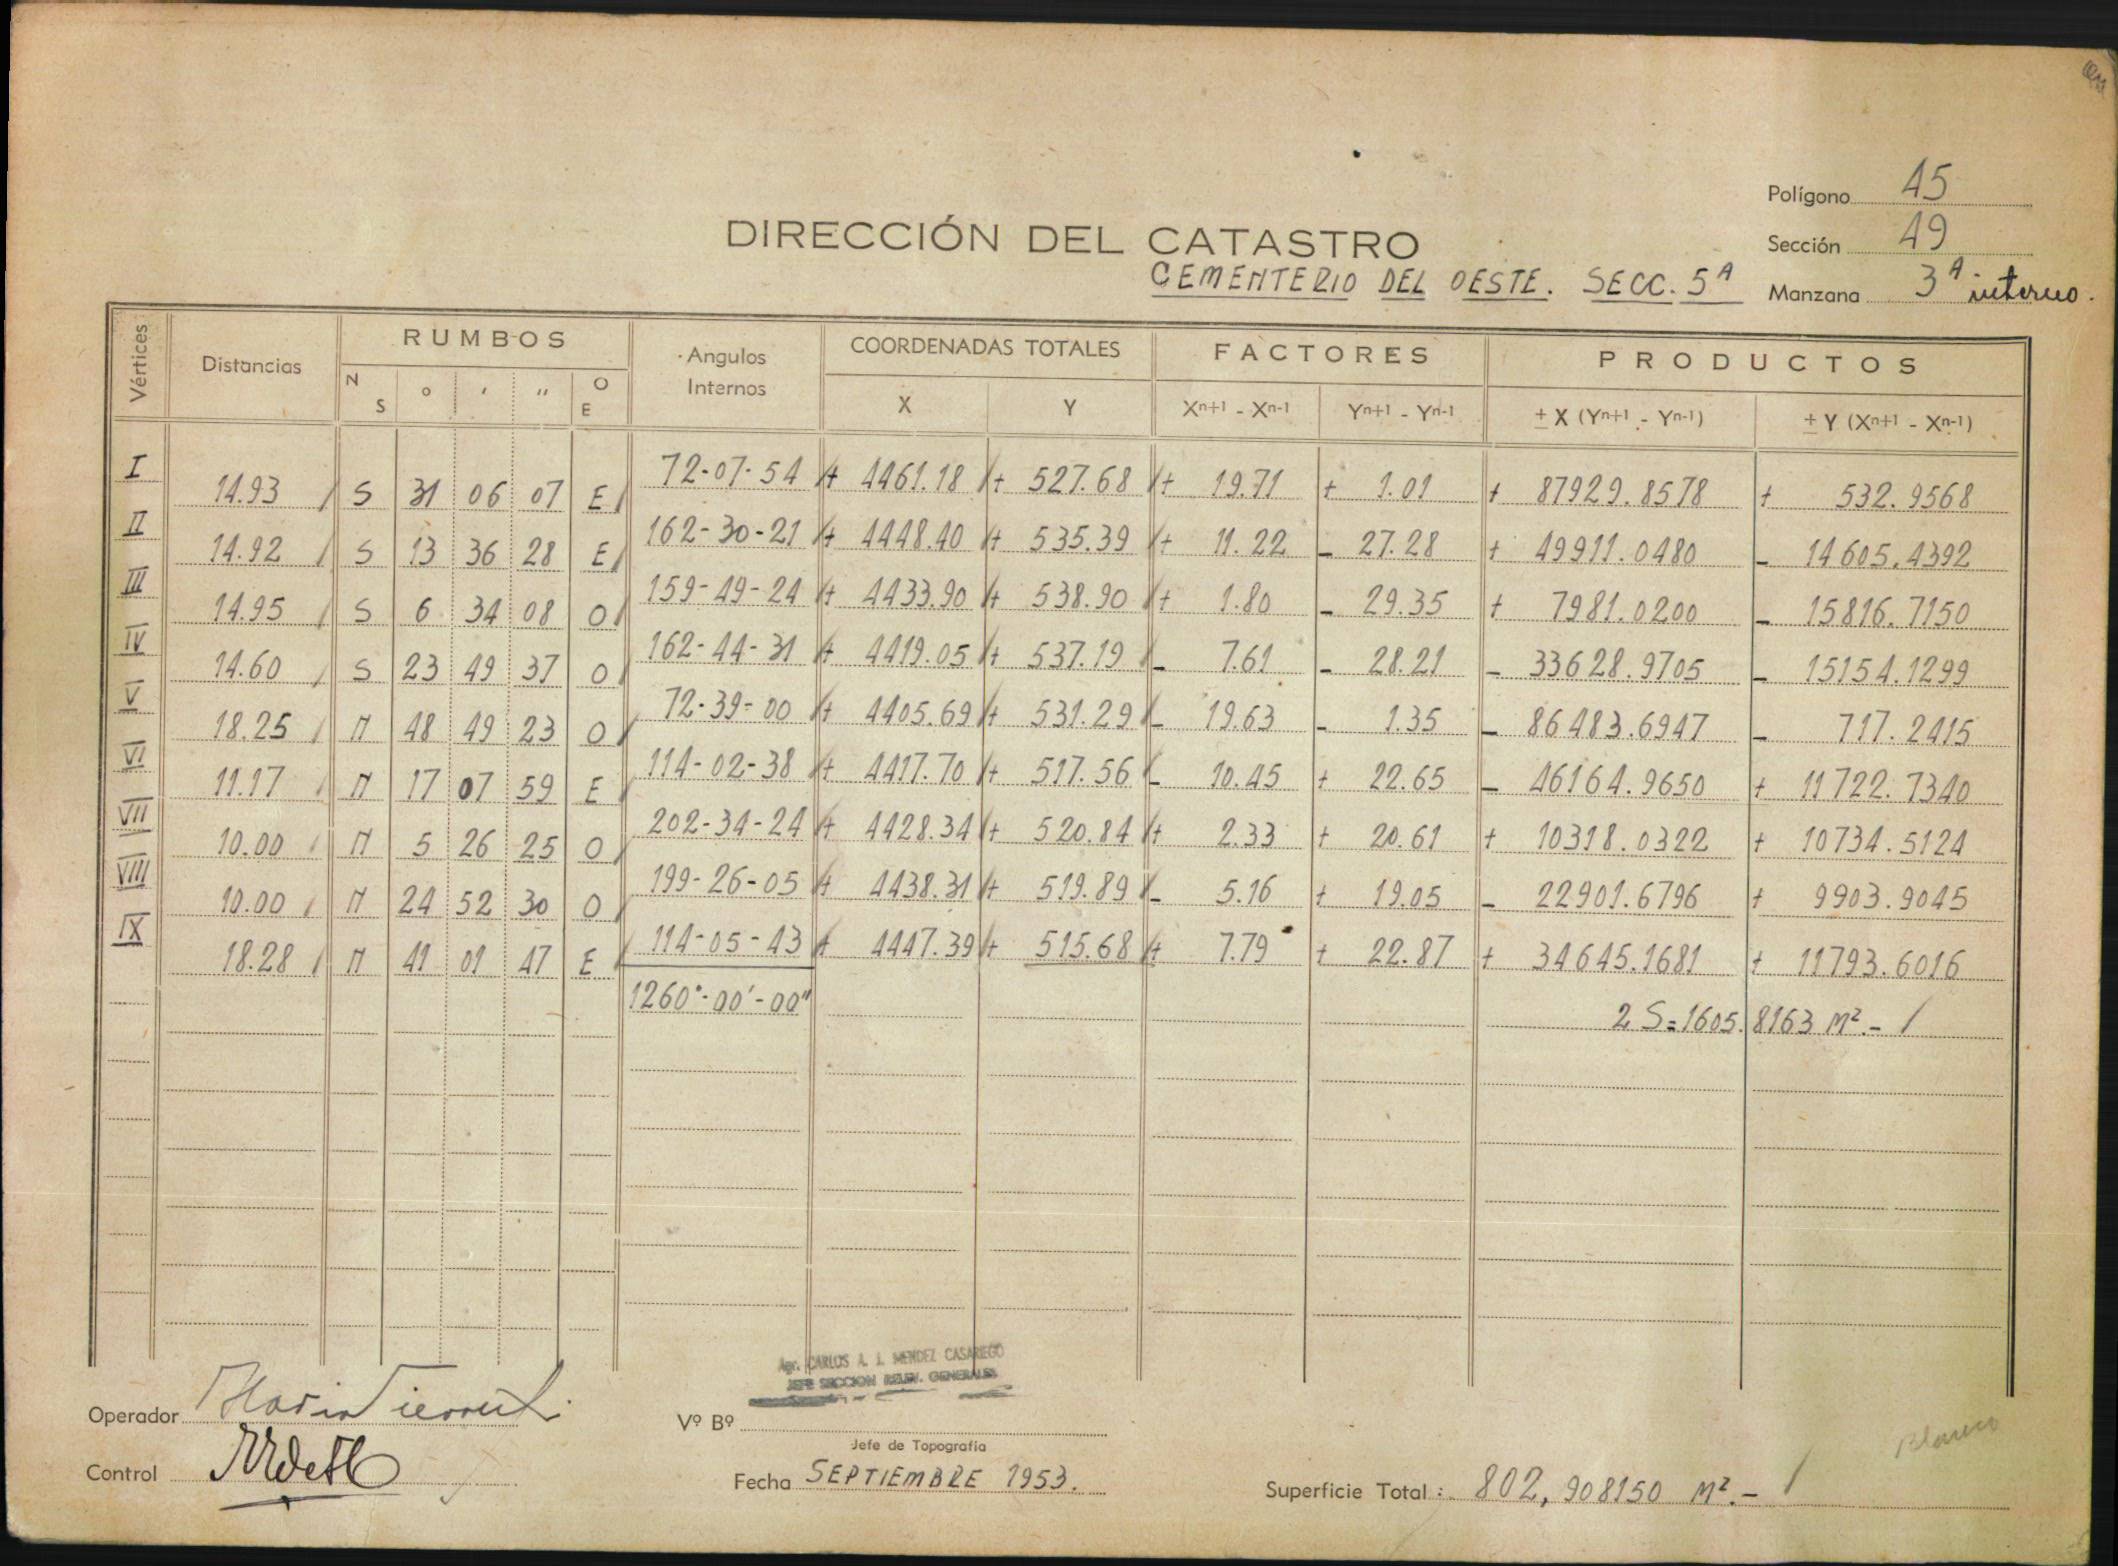 Polígono 45
DIRECCIÓN DEL CATASTRO
Sección 49
CEMENTERIO DEL OESTE. SECC. 5A
Manzana 3A interno.
Vértices Distancias RUMBOS Angulos Internos COORDENADAS TOTALES FACTORES PRODUCTOS
N S ° ' " O E X Y Xn+1 - Xn-1 Yn+1 - Yn-1 ± X (Yn+1 - Yn-1) ± Y (Xn+1 - Xn-1)
I 14.93 S 31 06 07 E 72-07-54 + 4461.18 + 527.68 + 19.71 + 1.01 + 87929.8578 + 532.9568
II 14.92 S 13 36 28 E 162-30-21 + 4448.40 + 535.39 + 11.22 - 27.28 + 49911.0480 - 14605.4392
III 14.95 S 6 34 08 O 159-49-24 + 4433.90 + 538.90 + 1.80 - 29.35 + 7981.0200 - 15816.7150
IV 14.60 S 23 49 37 O 162-44-31 + 4419.05 + 537.19 - 7.61 - 28.21 - 33628.9705 - 15154.1299
V 18.25 N 48 49 23 O 72-39-00 + 4405.69 + 531.29 - 19.63 - 1.35 - 86483.6947 - 717.2415
VI 11.17 N 17 07 59 E 114-02-38 + 4417.70 + 517.56 - 10.45 + 22.65 - 46164.9650 + 11722.7340
VII 10.00 N 5 26 25 O 202-34-24 + 4428.34 + 520.84 + 2.33 + 20.61 + 10318.0322 + 10734.5124
VIII 10.00 N 24 52 30 O 199-26-05 + 4438.31 + 519.89 - 5.16 + 19.05 - 22901.6796 + 9903.9045
IX 18.28 N 41 01 47 E 114-05-43 + 4447.39 + 515.68 + 7.79 + 22.87 + 34645.1681 + 11793.6016
1260°-00'-00"
2 S=1605.8163 M².-
Agr. CARLOS A. J. MENDEZ CASARIEGO
JEFE SECCION RELEV. GENERALES
Operador
Vº Bº
Jefe de Topografía
Blanco
Control
Fecha SEPTIEMBRE 1953.
Superficie Total : 802,908150 M².-